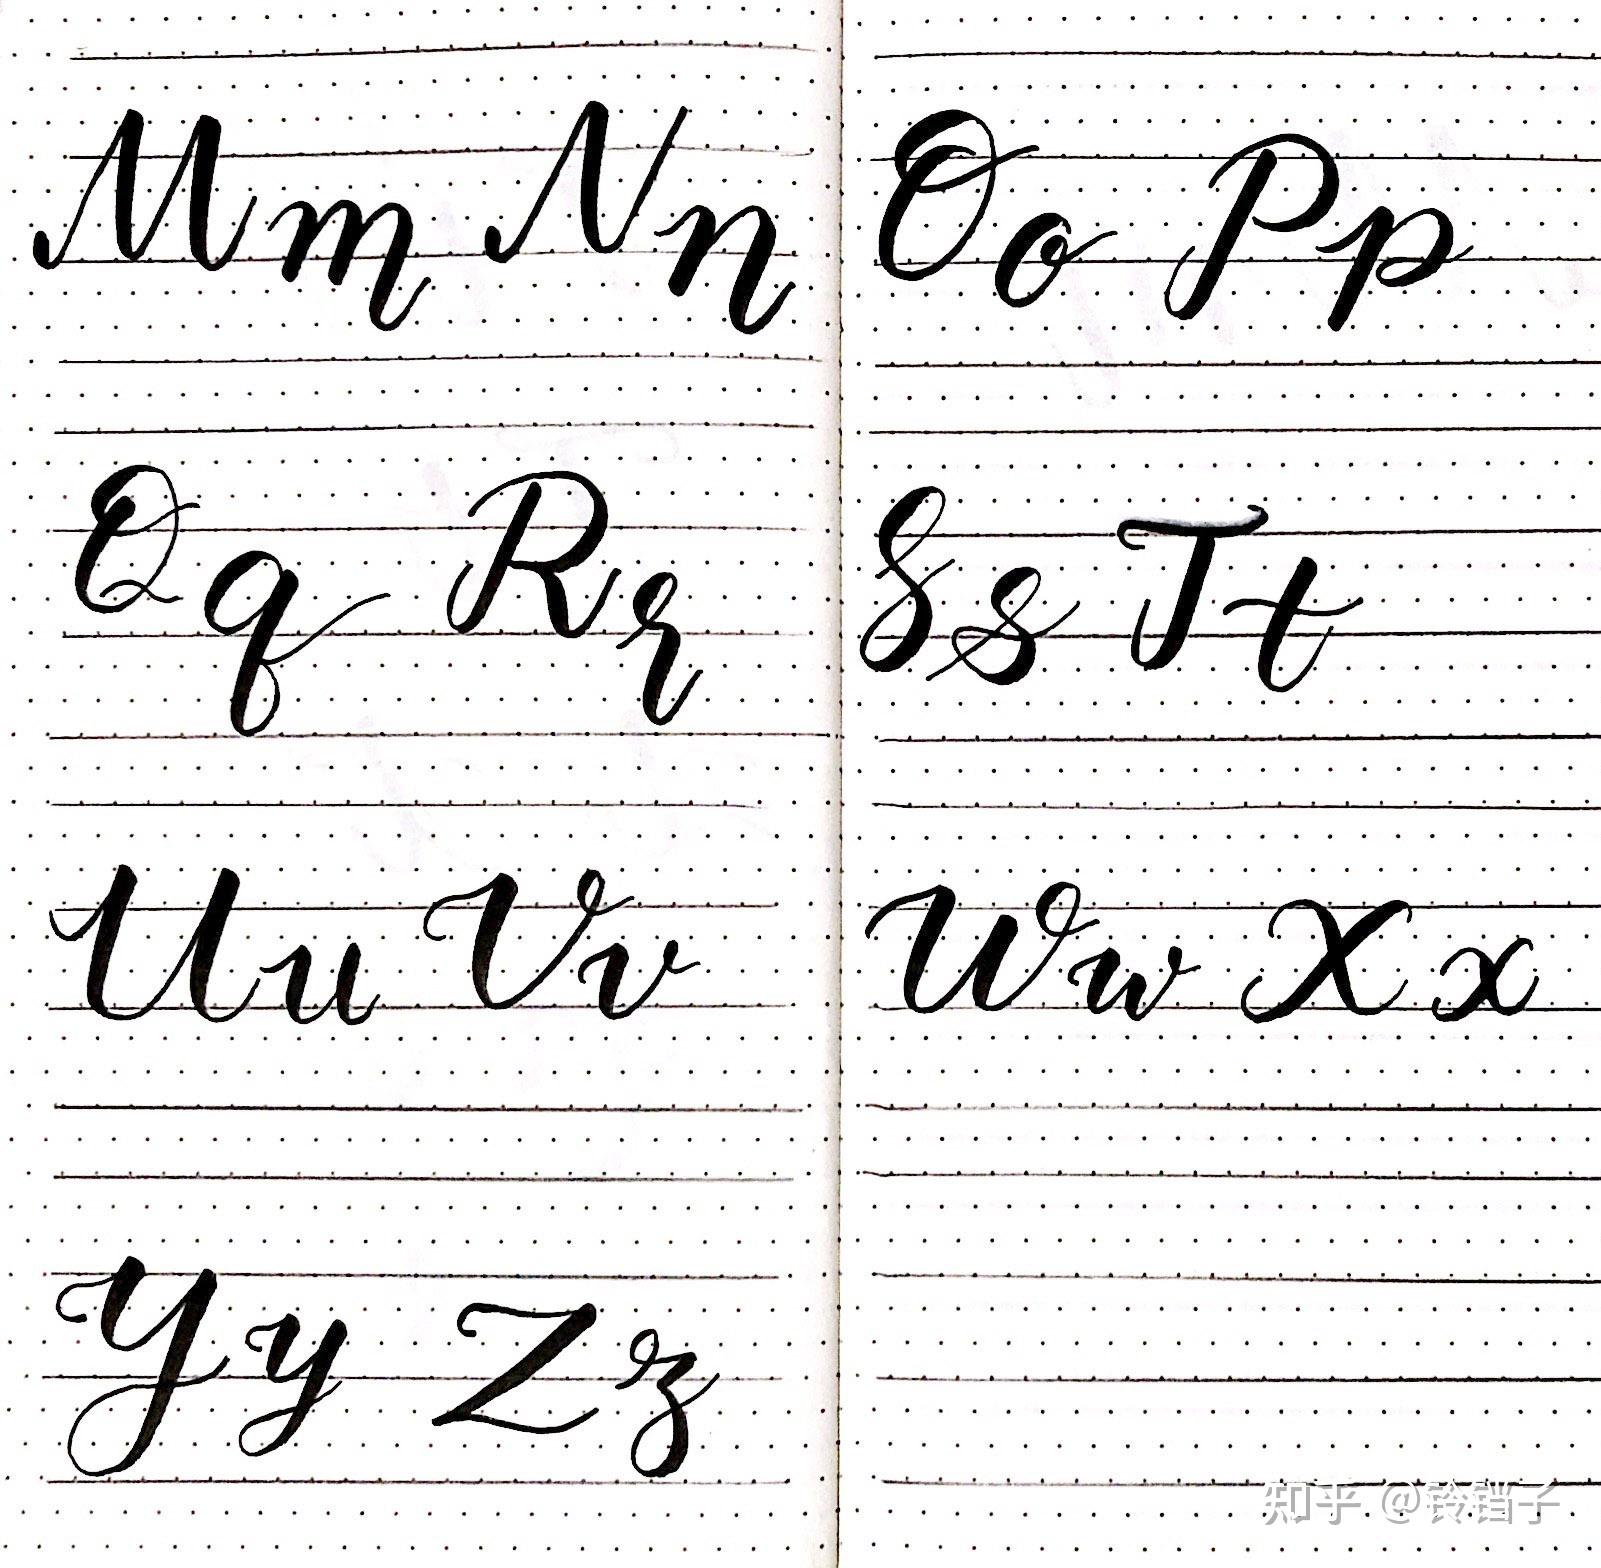 Mm Nn
Oo Pp
Qq Rr
Ss Tt
Uu Vv
Ww Xx
Yy Zz
知乎 @铃铛子